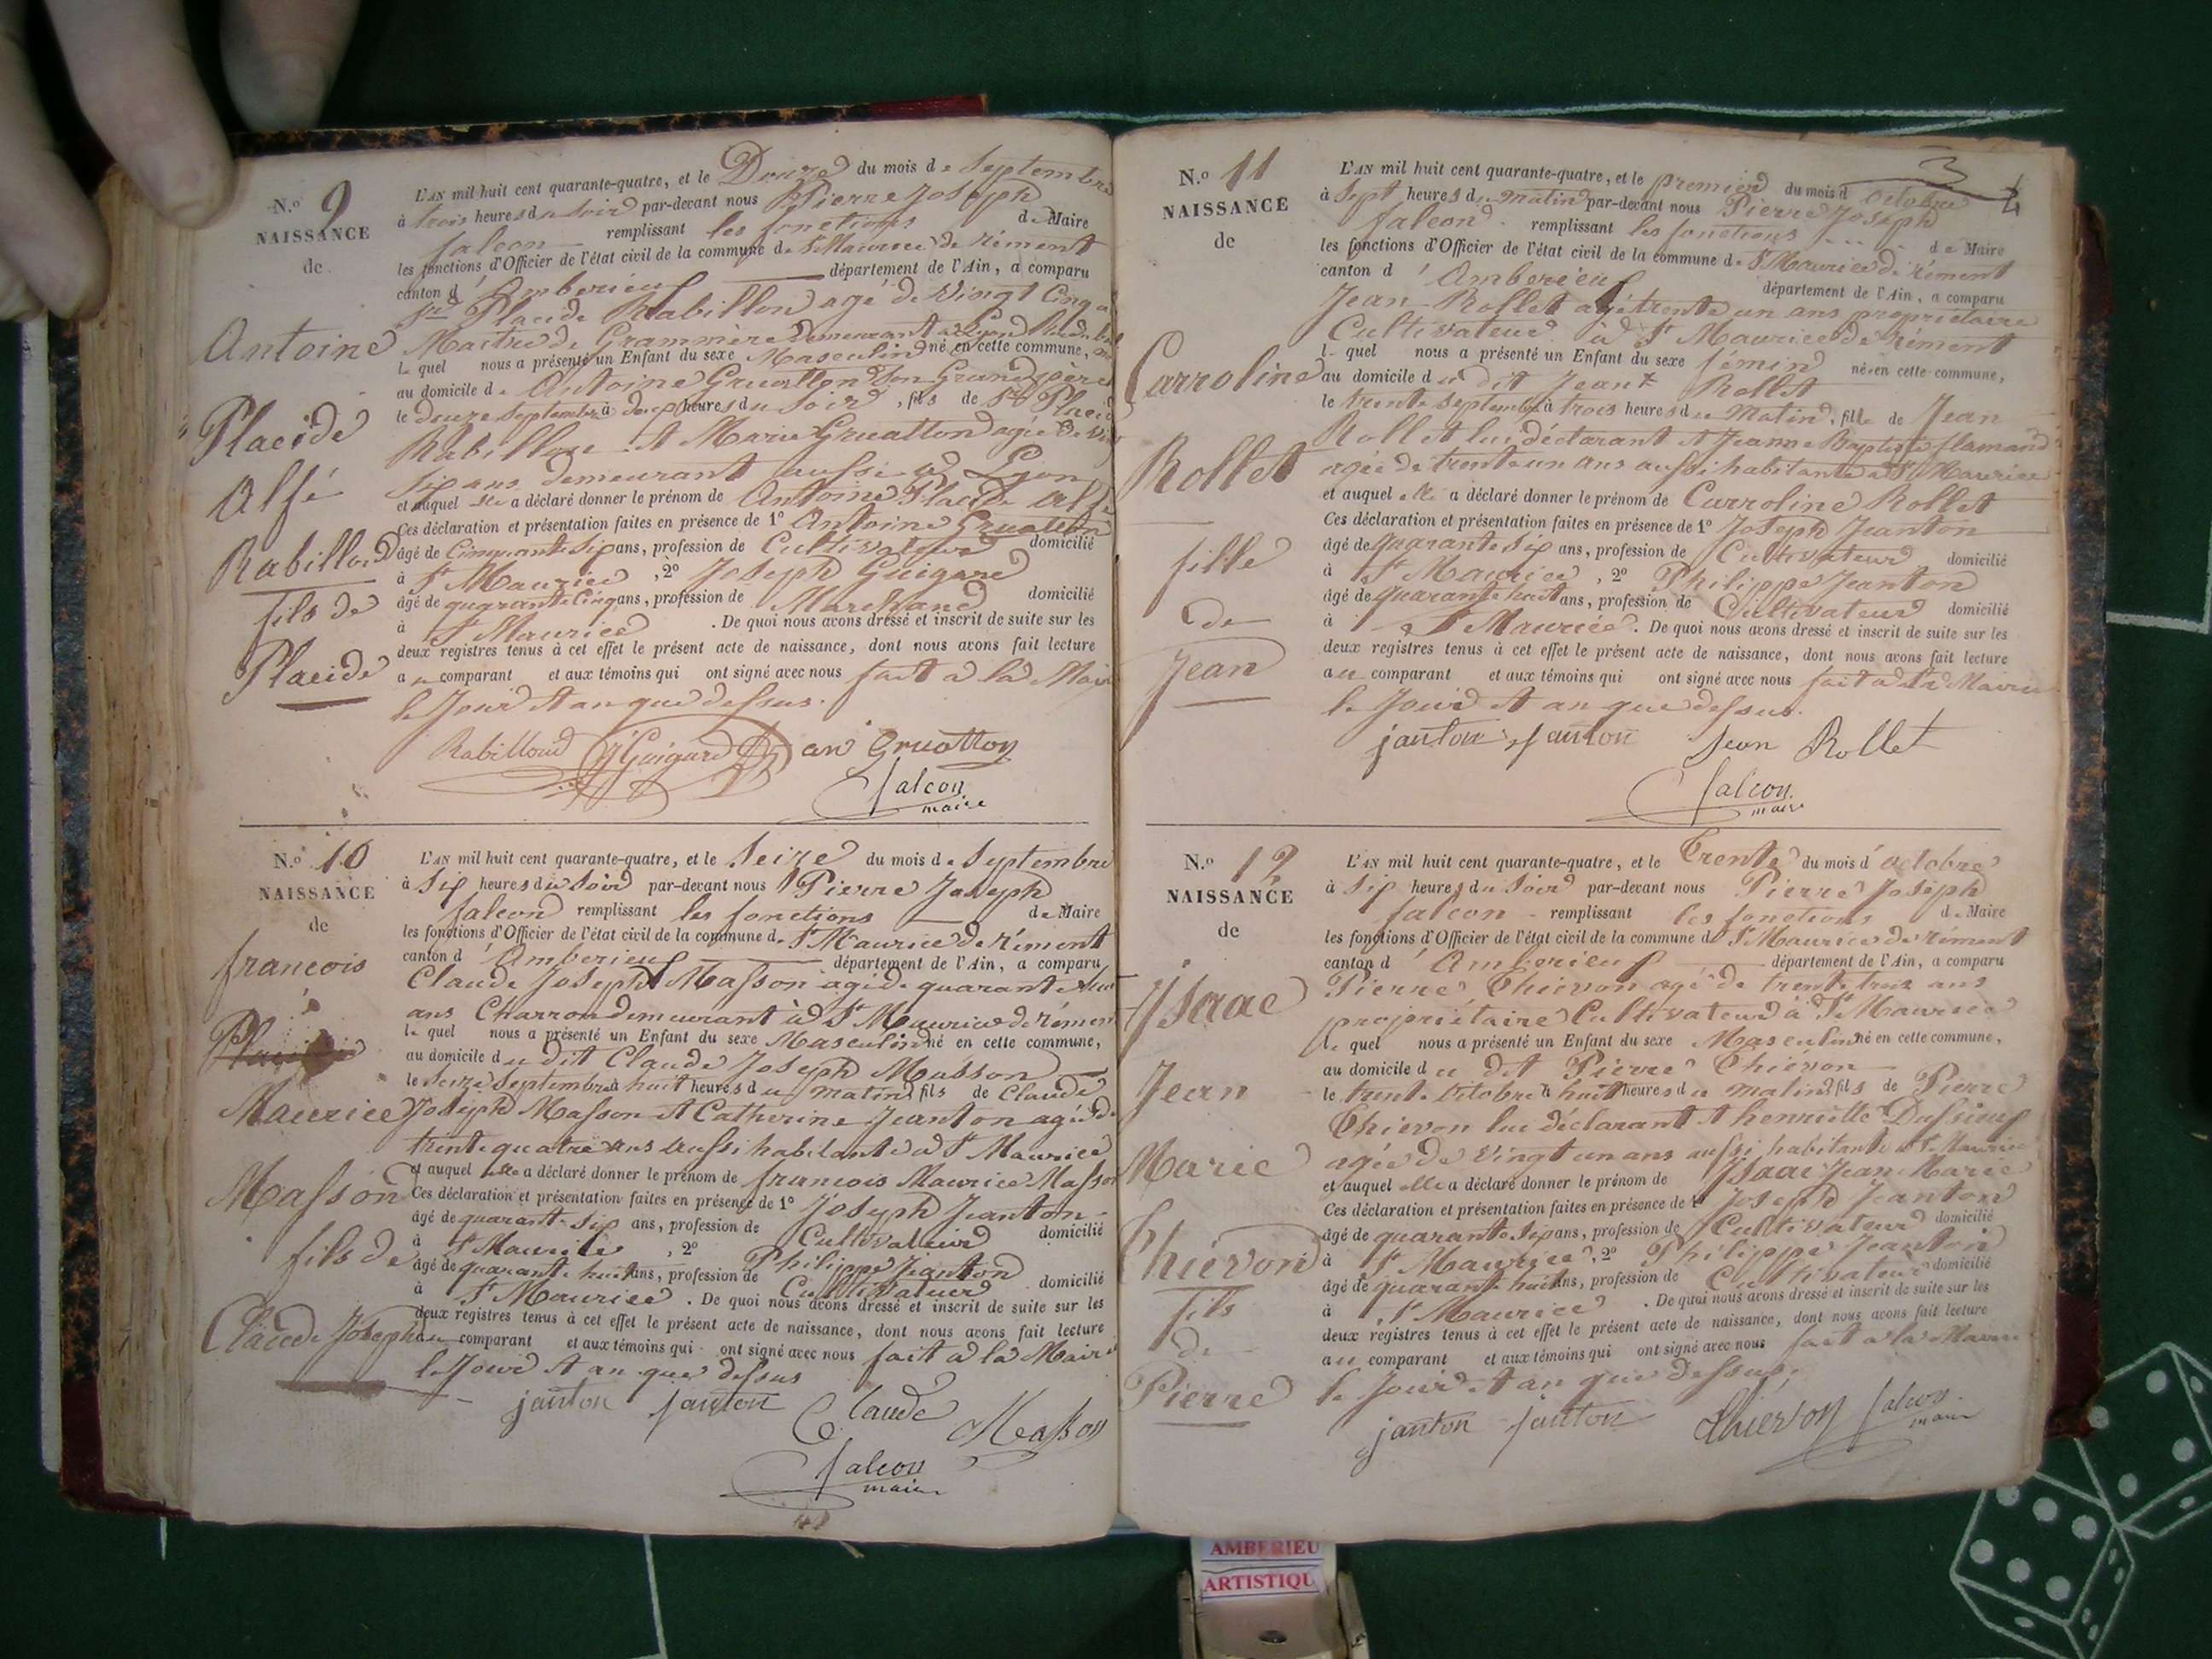 N.º 9
NAISSANCE
de
Antoine
Placide
Alfé
Rabilloud
fils de
Placide
L'AN mil huit cent quarante-quatre, et le Douze du mois de Septembre
à trois heures du Soir par-devant nous Pierre Joseph
falcon remplissant les fonctions de Maire
les fonctions d'Officier de l'état civil de la commune de St Maurice de rément
canton d'Amberieux département de l'Ain, a comparu
Sr Placide Rabilloud agé de Vingt Cinq
Maitre de Grammere Demeurant à Lyon
le quel nous a présenté un Enfant du sexe Masculin né en cette commune,
au domicile de Antoine Gruatton Son Grand père
le douze Septembre à heures du Soir, fils de Sr Placide
Rabilloud Et Marie Gruatton agée de
Six ans demeurant aussi à Lyon
et auquel elle a déclaré donner le prénom de Antoine Placide Alfé
Ces déclaration et présentation faites en présence de 1º Antoine Gruatton
âgé de Cinquante Six ans, profession de Cultivateur domicilié
à St Maurice, 2º Joseph Guigard
âgé de quarante Cinq ans, profession de Marchand domicilié
à St Maurice. De quoi nous avons dressé et inscrit de suite sur les
deux registres tenus à cet effet le présent acte de naissance, dont nous avons fait lecture
au comparant et aux témoins qui ont signé avec nous fait à la Mairie
le Jour Et an que dessus.
Rabilloud J Guigard an Gruatton
falcon
maire
N.º 10
NAISSANCE
de
francois
Placide
Maurice
Masson
fils de
Claude Joseph
L'AN mil huit cent quarante-quatre, et le Seize du mois de Septembre
à Six heures du Soir par-devant nous Pierre Joseph
falcon remplissant les fonctions de Maire
les fonctions d'Officier de l'état civil de la commune de St Maurice de rément
canton d'Amberieux département de l'Ain, a comparu
Claude Joseph Masson agé de quarante
ans Charron demeurant à St Maurice de rément
le quel nous a présenté un Enfant du sexe Masculin né en cette commune,
au domicile du dit Claude Joseph Masson
le Seize Septembre à huit heures du matin, fils de Claude
Joseph Masson Et Catherine Jeanton agée de
trente quatre ans aussi habitante à St Maurice
et auquel elle a déclaré donner le prénom de francois Maurice Masson
Ces déclaration et présentation faites en présence de 1º Joseph Jeanton
âgé de quarante Six ans, profession de Cultivateur domicilié
à St Maurice, 2º Philippe Jeanton
âgé de quarante huit ans, profession de Cultivateur domicilié
à St Maurice. De quoi nous avons dressé et inscrit de suite sur les
deux registres tenus à cet effet le présent acte de naissance, dont nous avons fait lecture
au comparant et aux témoins qui ont signé avec nous fait à la Mairie
le Jour Et an que dessus
janton janton Claude Masson
falcon
maire
3
N.º 11
NAISSANCE
de
Carroline
Rollet
fille
de
Jean
L'AN mil huit cent quarante-quatre, et le premier du mois d'octobre
à Sept heures du matin par-devant nous Pierre Joseph
falcon remplissant les fonctions de Maire
les fonctions d'Officier de l'état civil de la commune de St Maurice de rément
canton d'Amberieux département de l'Ain, a comparu
Jean Rollet agé trente un ans propriétaire
Cultivateur à St Maurice de rément
le quel nous a présenté un Enfant du sexe fémin née en cette commune,
au domicile du dit Jean Rollet
le trente Septembre à trois heures du Matin, fille de Jean
Rollet lui déclarant Et Jeanne Baptiste flamand
agée de trente un ans aussi habitante à St Maurice
et auquel elle a déclaré donner le prénom de Carroline Rollet
Ces déclaration et présentation faites en présence de 1º Joseph Jeanton
âgé de quarante Six ans, profession de Cultivateur domicilié
à St Maurice, 2º Philippe Jeanton
âgé de quarante huit ans, profession de Cultivateur domicilié
à St Maurice. De quoi nous avons dressé et inscrit de suite sur les
deux registres tenus à cet effet le présent acte de naissance, dont nous avons fait lecture
au comparant et aux témoins qui ont signé avec nous fait à la Mairie
le Jour Et an que dessus.
janton janton Jean Rollet
falcon
maire
N.º 12
NAISSANCE
de
Ysaac
Jean
Marie
Thiévon
fils
de
Pierre
L'AN mil huit cent quarante-quatre, et le Trente du mois d'octobre
à Six heures du Soir par-devant nous Pierre Joseph
falcon remplissant les fonctions de Maire
les fonctions d'Officier de l'état civil de la commune de St Maurice de rément
canton d'Amberieux département de l'Ain, a comparu
Pierre Thiévon agé de trente trois ans
propriétaire Cultivateur à St Maurice
le quel nous a présenté un Enfant du sexe Masculin né en cette commune,
au domicile du dit Pierre Thiévon
le trente Octobre à huit heures du matin, fils de Pierre
Thiévon lui déclarant Et henriette
agée de vingt un ans aussi habitante à St Maurice
et auquel elle a déclaré donner le prénom de Ysaac Jean Marie
Ces déclaration et présentation faites en présence de 1º Joseph Jeanton
âgé de quarante Six ans, profession de Cultivateur domicilié
à St Maurice, 2º Philippe Jeanton
âgé de quarante huit ans, profession de Cultivateur domicilié
à St Maurice. De quoi nous avons dressé et inscrit de suite sur les
deux registres tenus à cet effet le présent acte de naissance, dont nous avons fait lecture
au comparant et aux témoins qui ont signé avec nous fait à la Mairie
le Jour Et an que dessus.
janton janton Thiévon falcon
maire
AMBERIEU
ARTISTIQU